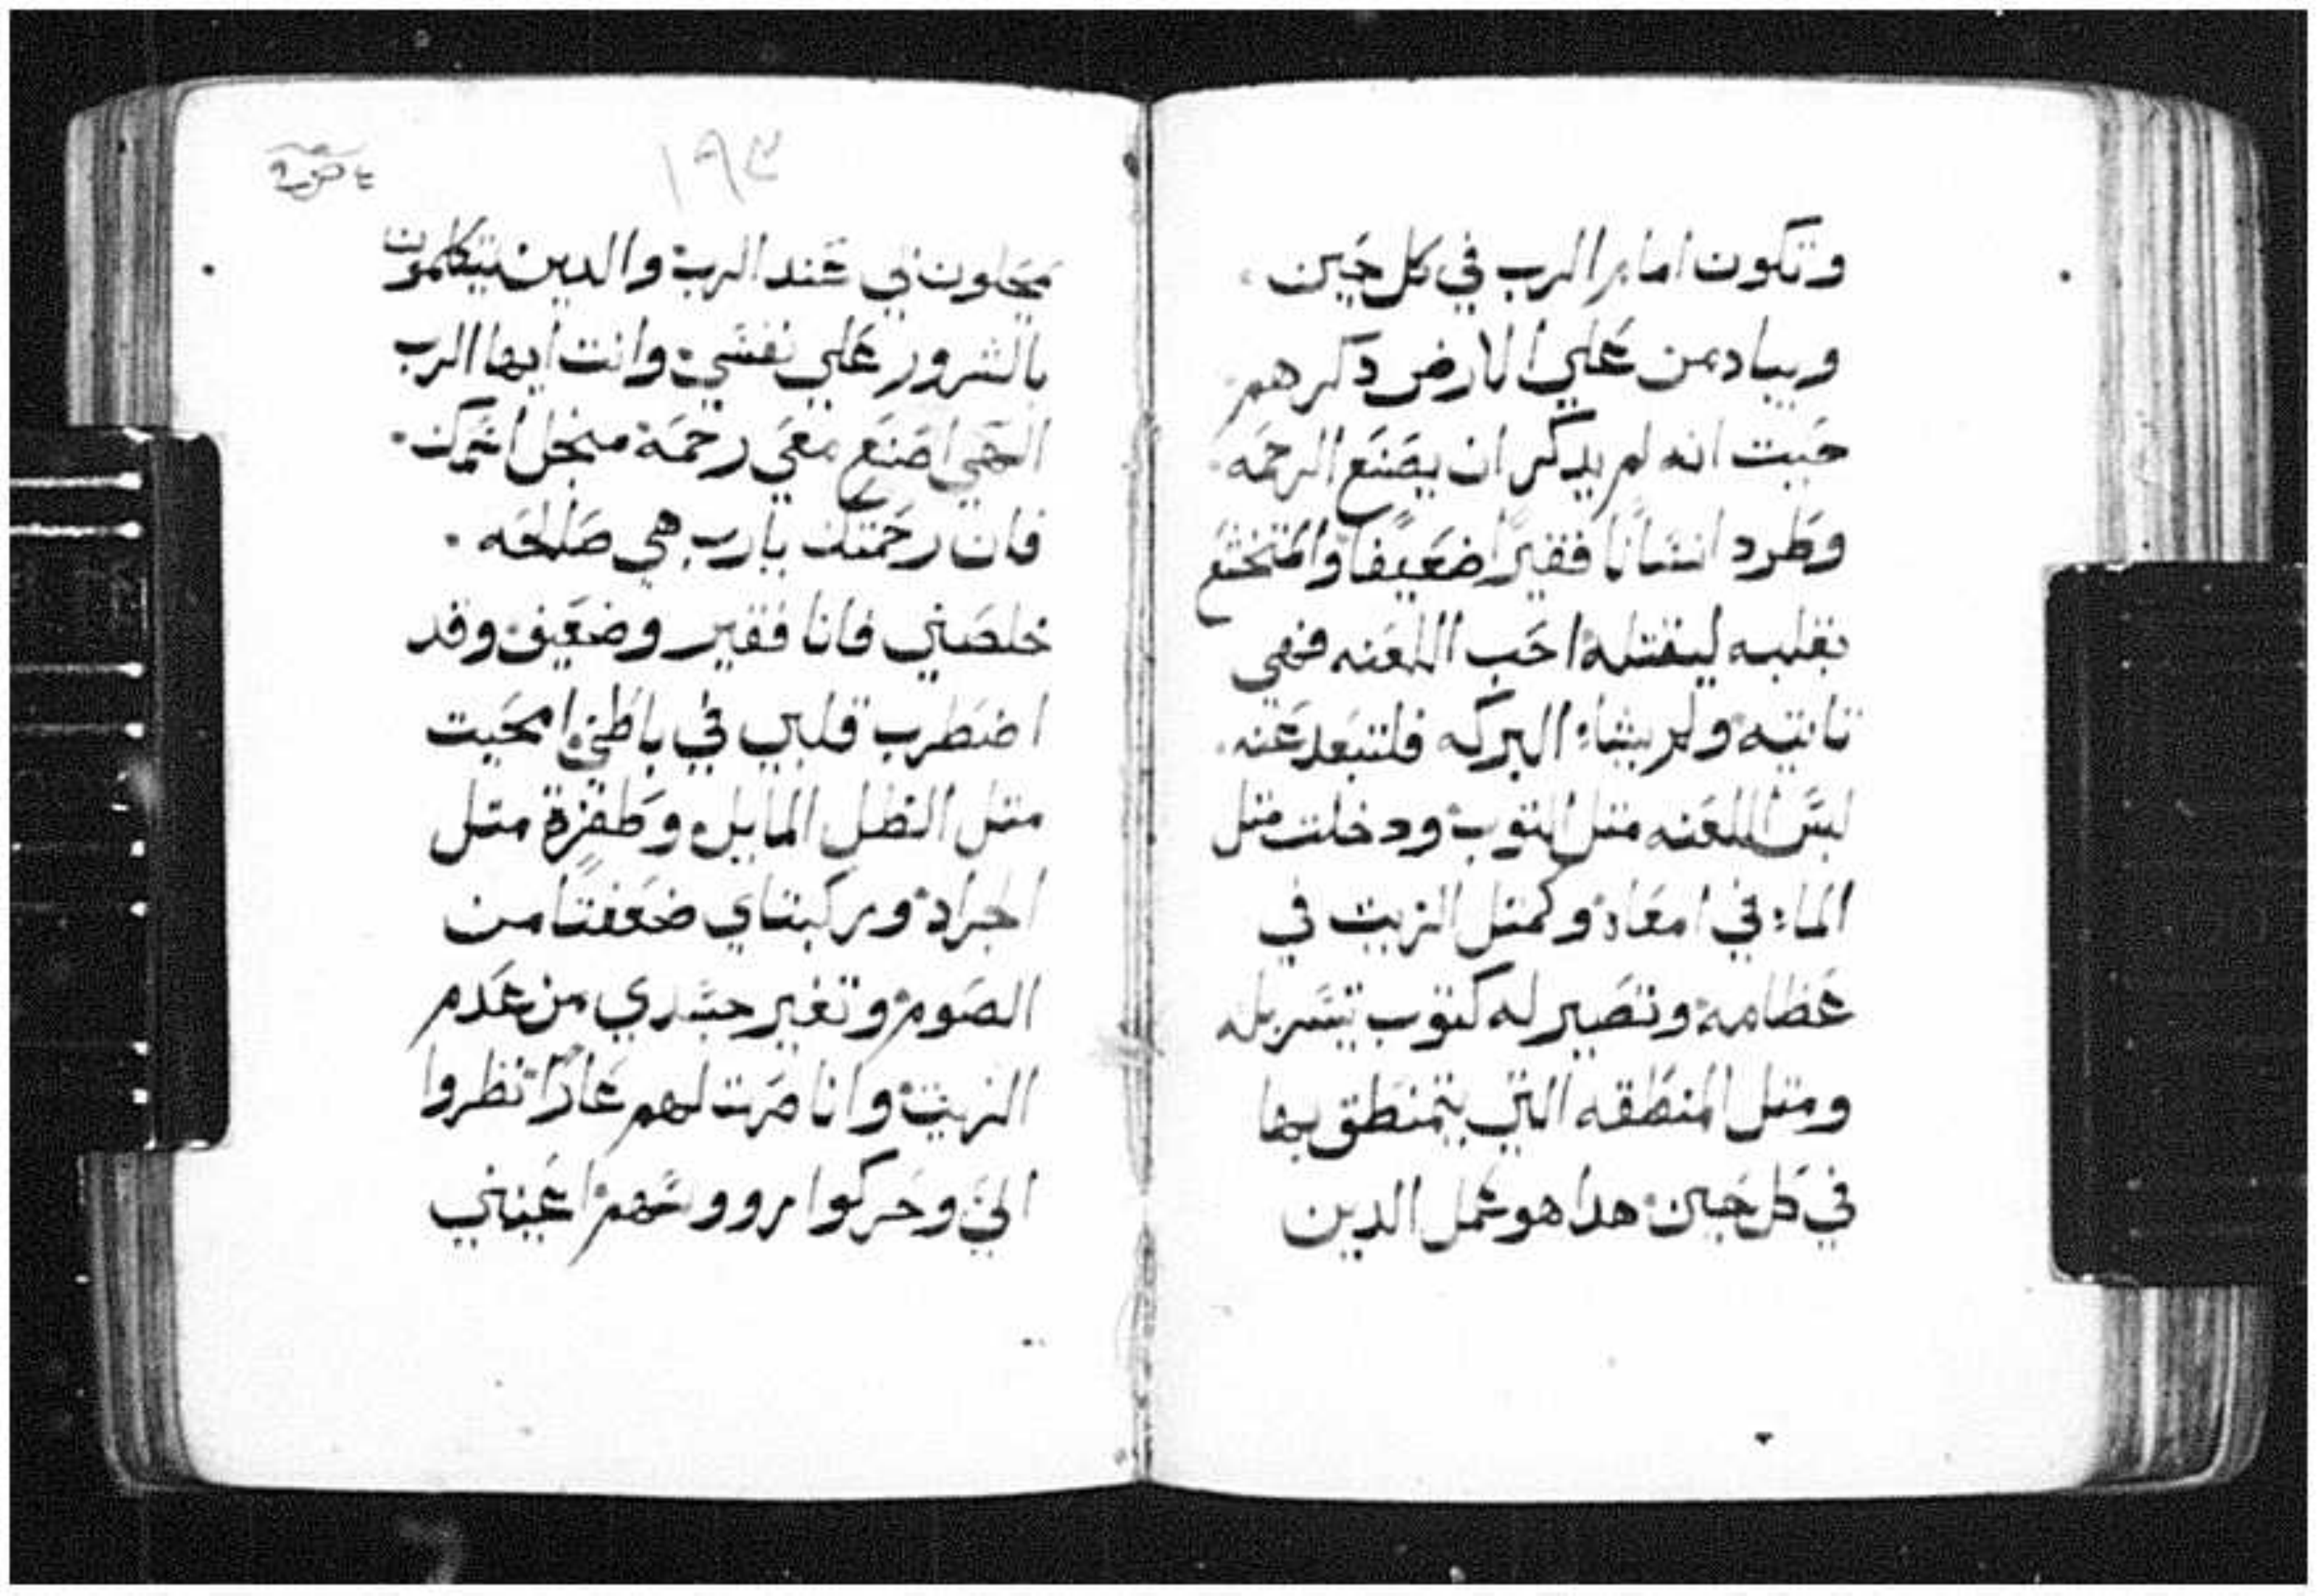 وتكون امام الرب في كل حين
ويباد من علي الارض دكرهم
حيت انه لم يدكر ان يصنع الرحمه
وطرد انسانا فقيرا ضعيفا والمتخشع
بقلبه ليقتله احب اللعنه فهي
تاتيه ولم يشاء البركه فلتبعد عنه
لبس اللعنه متل التوب ودخلت متل
الماء في امعاه وكمتل الزيت في
عظامه وتصير له كتوب يتسربله
ومتل المنطقه التي يتمنطق بها
في كل حين هدا هو عمل الدين
١٩٣
يمحلون بي عند الرب والدين يتكلمون
بالشرور علي نفسي وانت ايها الرب
الهي اصنع معي رحمة منجل اسمك
فان رحمتك يارب هي صالحه
خلصني فانا فقير وضعيف وقد
اضطرب قلبي في باطني امحيت
متل الظل المايل وطفرة متل
الجراد وركبتاي ضعفتا من
الصوم وتغير جسدي من عدم
الزيت وانا صرت لهم عارا نظروا
الي وحركوا رووسهم اعيني